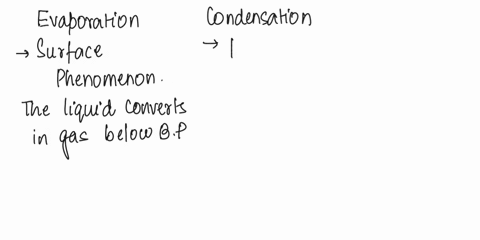 Evaporation
→ Surface
Phenomenon.
The liquid converts
in gas below B.P
Condensation
→